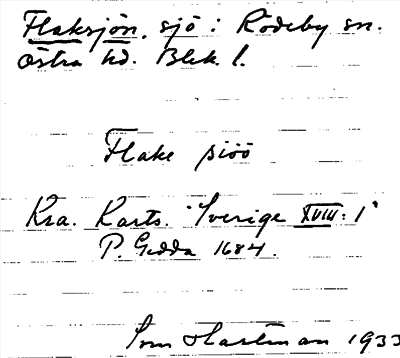 Flaksjön, sjö i Rödeby sn.
Östra hd. Blek. l.
Flake siöö
Kra. Karts. "Sverige XVIII: 1"
P. Gedda 1684.
Hartman 1933